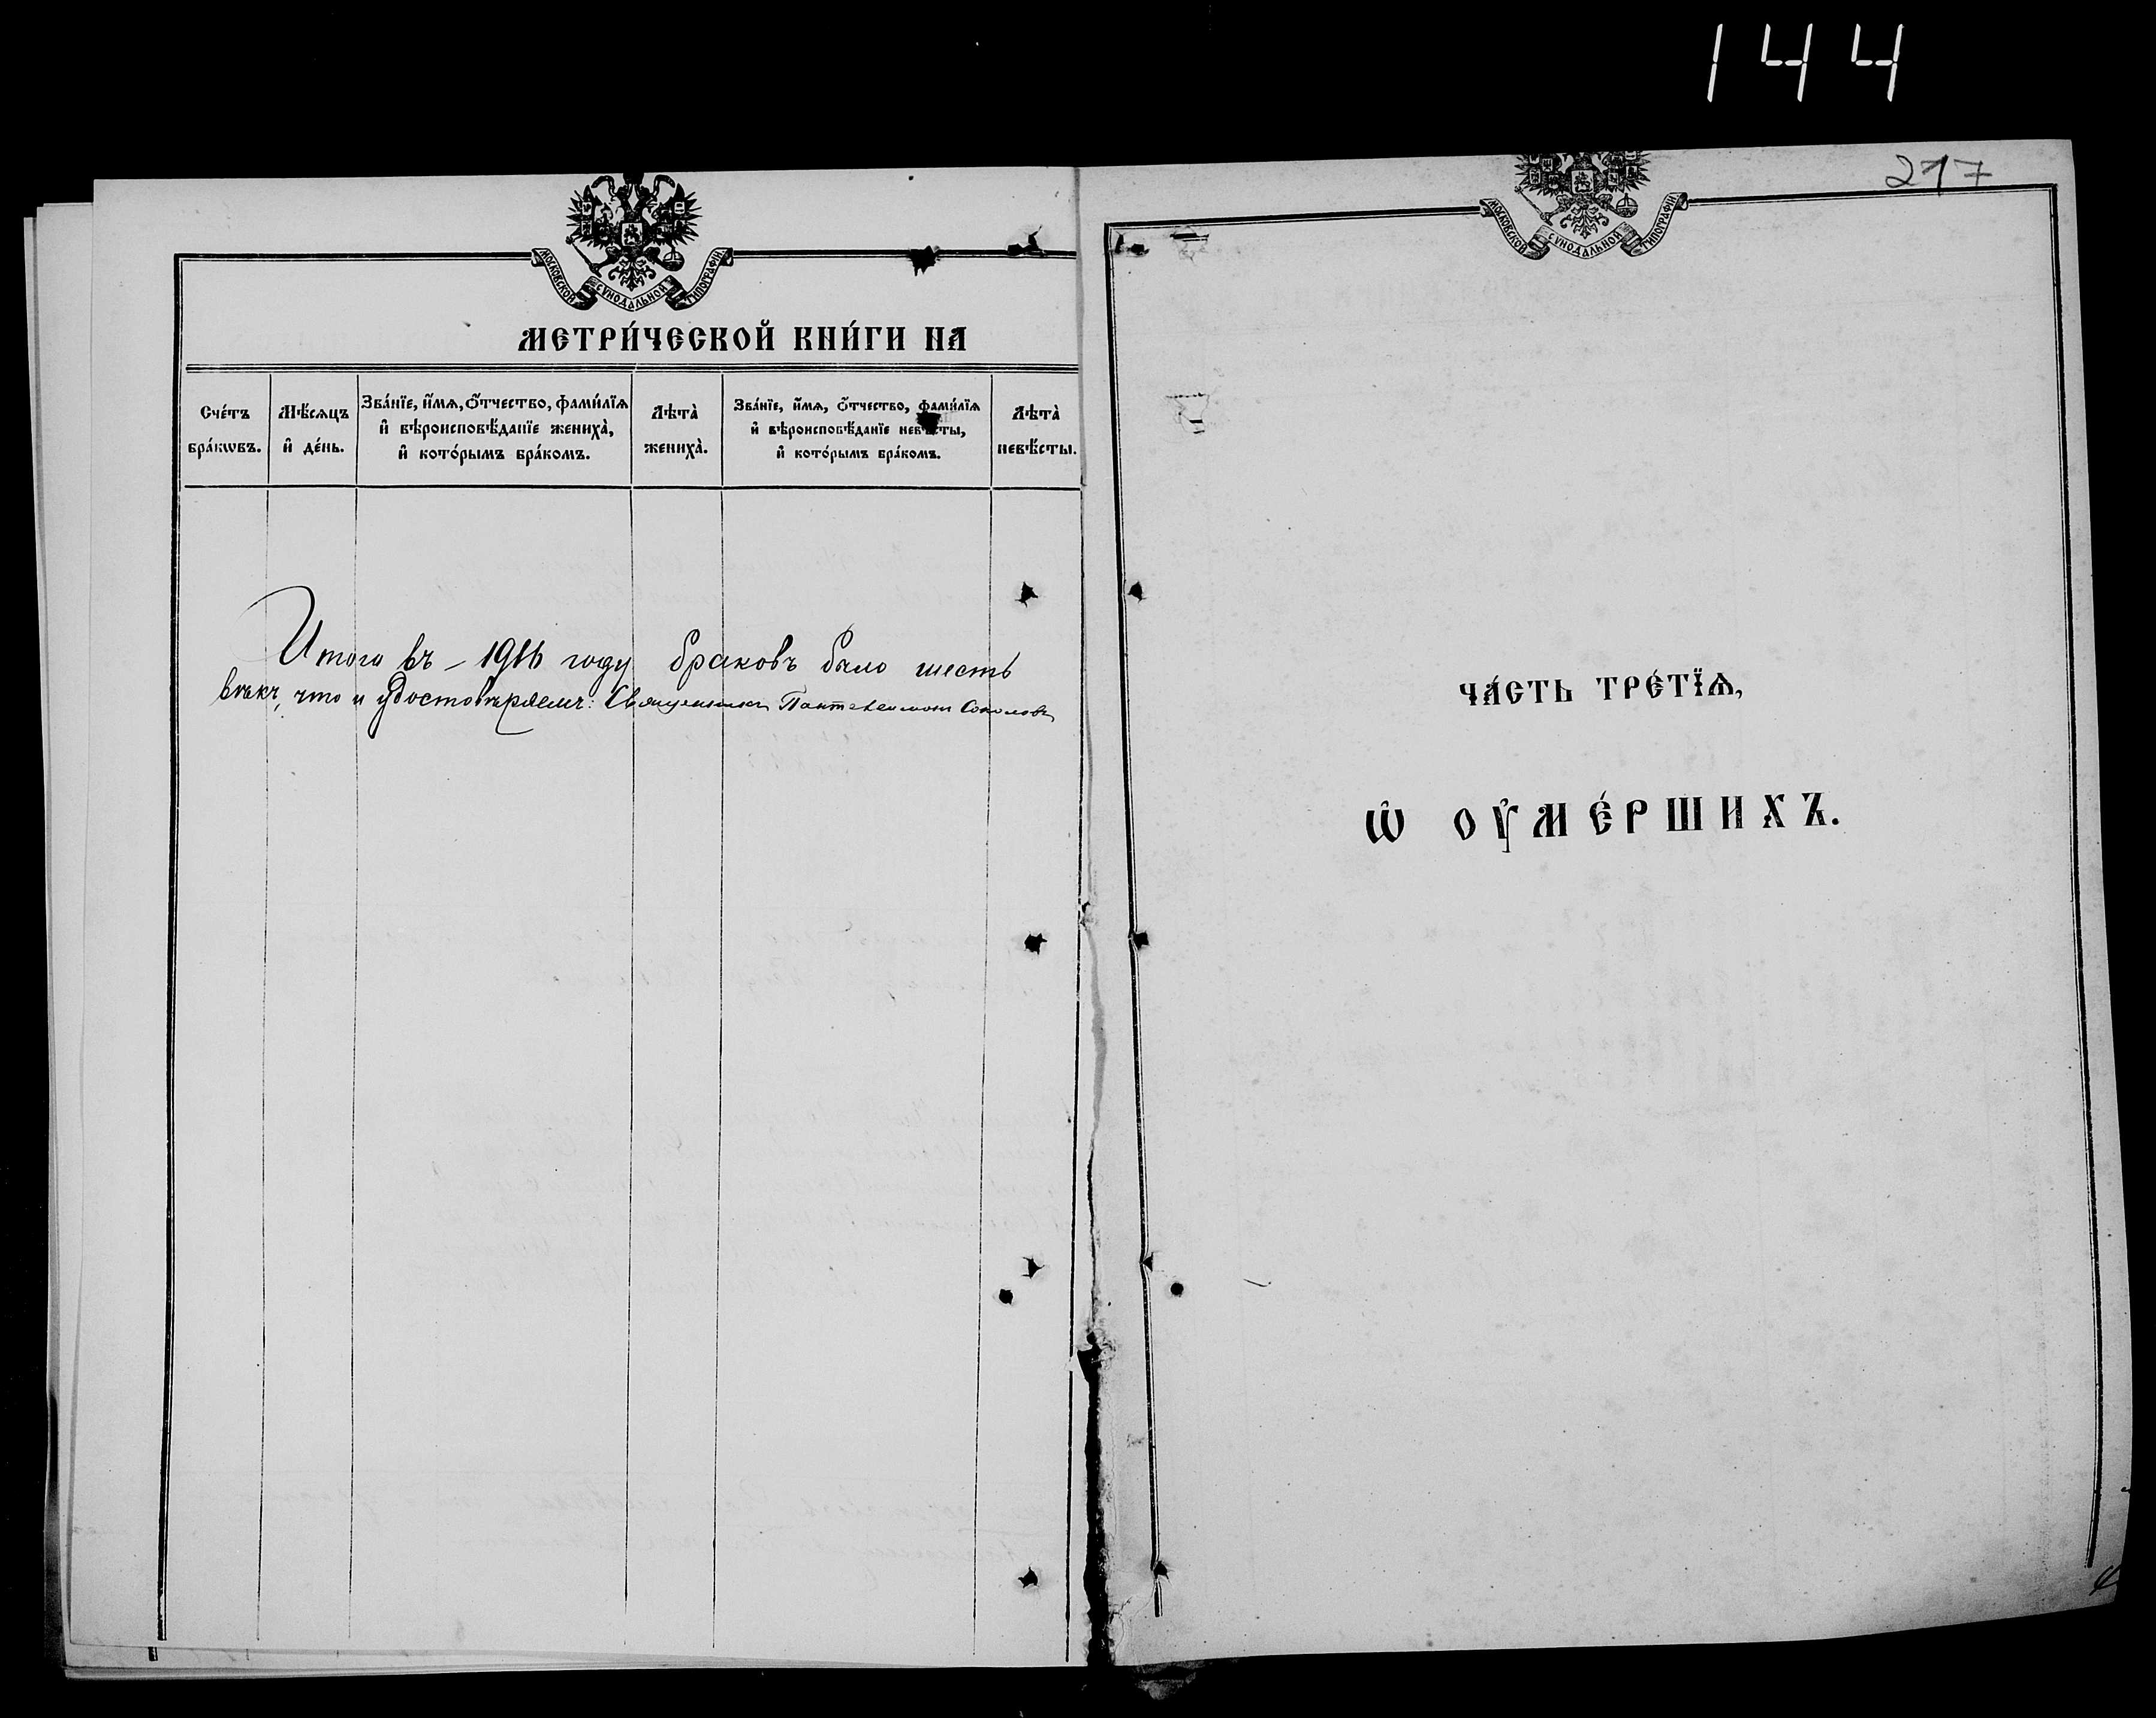 144
217
МОСКОВСКОЙ СѴНОДАЛЬНОЙ ТИПОГРАФІИ
МЕТРИ́ЧЕСКОЙ КНИ́ГИ НА
Сче́тъ бра́кѡвъ.
Мѣ́сѧцъ и҆ де́нь.
Зва́нїе, и҆́мѧ, ѻ҆́тчество, фами́лїѧ
и҆ вѣроисповѣ́данїе жениха̀,
и҆ кото́рымъ бра́комъ.
Лѣта̀ жениха̀.
Зва́нїе, и҆́мѧ, ѻ҆́тчество, фами́лїѧ
и҆ вѣроисповѣ́данїе невѣ́сты,
и҆ кото́рымъ бра́комъ.
Лѣта̀ невѣ́сты.
Итого въ – 1916 году браковъ было шесть
что и удостовѣряемъ: Священникъ Пантелеимонъ Соколовъ
МОСКОВСКОЙ СѴНОДАЛЬНОЙ ТИПОГРАФІИ
ЧА́СТЬ ТРЕ́ТЇѦ,
Ѡ҆ ОУ҆МЕ́РШИХЪ.